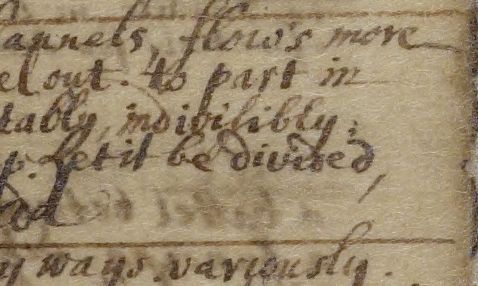 annels, flows more
el out. to part in
tably, indivisibly;
p. let it be divided,
y ways variously.